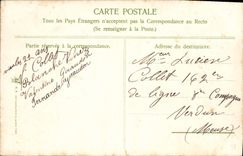 CARTE POSTALE
Tous les Pays Étrangers n'acceptent pas la Correspondance au Recto
(Se renseigner à la Poste.)
Partie réservée à la correspondance.
Adresse du destinataire.
22 ans
Collet
Blanche
Fernande
Mr Lucien
Collet 162e
de ligne 8e Compagnie
Verdun
(Meuse)